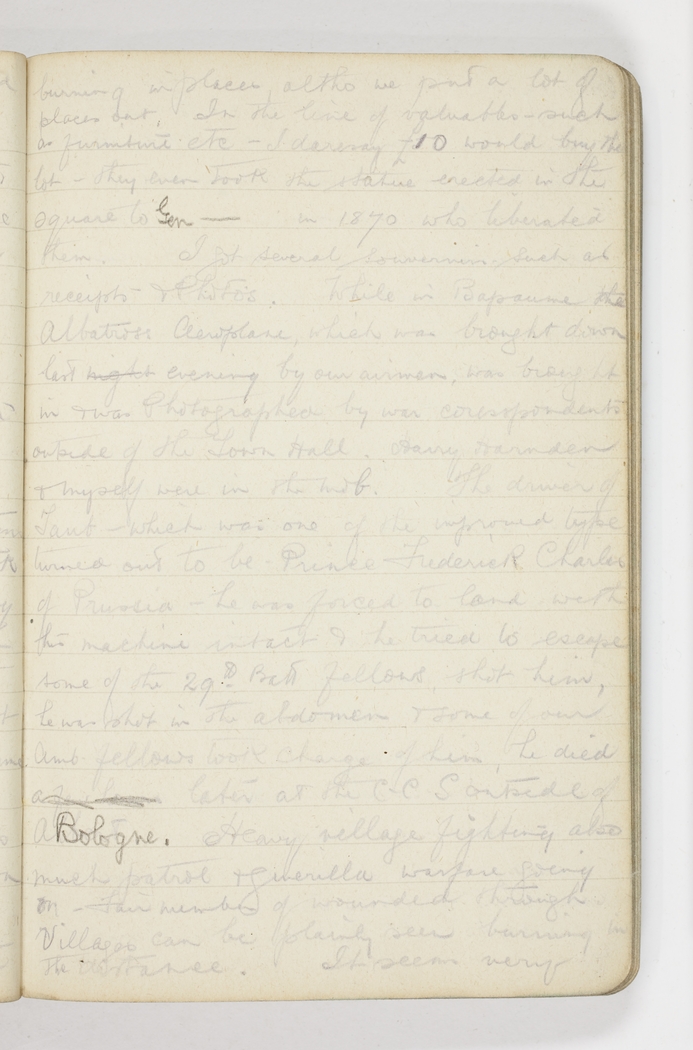 burning in places, altho we put a lot of
places out. In the line of valuables - such
as furniture etc - I daresay £10 would buy the
lot - they even took the statue erected in the
square to Gen — in 1870 who liberated
them. I got several souvenirs such as
receipts & Photos. While in Bapaume the
Albatross Aeroplane, which was brought down
last night evening by our airmen, was brought
in & was Photographed by war correspondents
outside of the Town Hall. Harry Harnden
& myself were in the mob. The driver of
Taub - which was one of the improved type
turned out to be Prince Frederick Charles
of Prussia - he was forced to land with
his machine intact & he tried to escape
some of the 29th Batt fellows shot him,
he was shot in the abdomen & some of our
Amb fellows took charge of him, he died
later at the C.C.S outside of
Bologne. Heavy village fighting also
much patrol & Guerilla warfare going
on - Fair number of wounded through.
Villages can be plainly seen burning in
the distance. It seems very